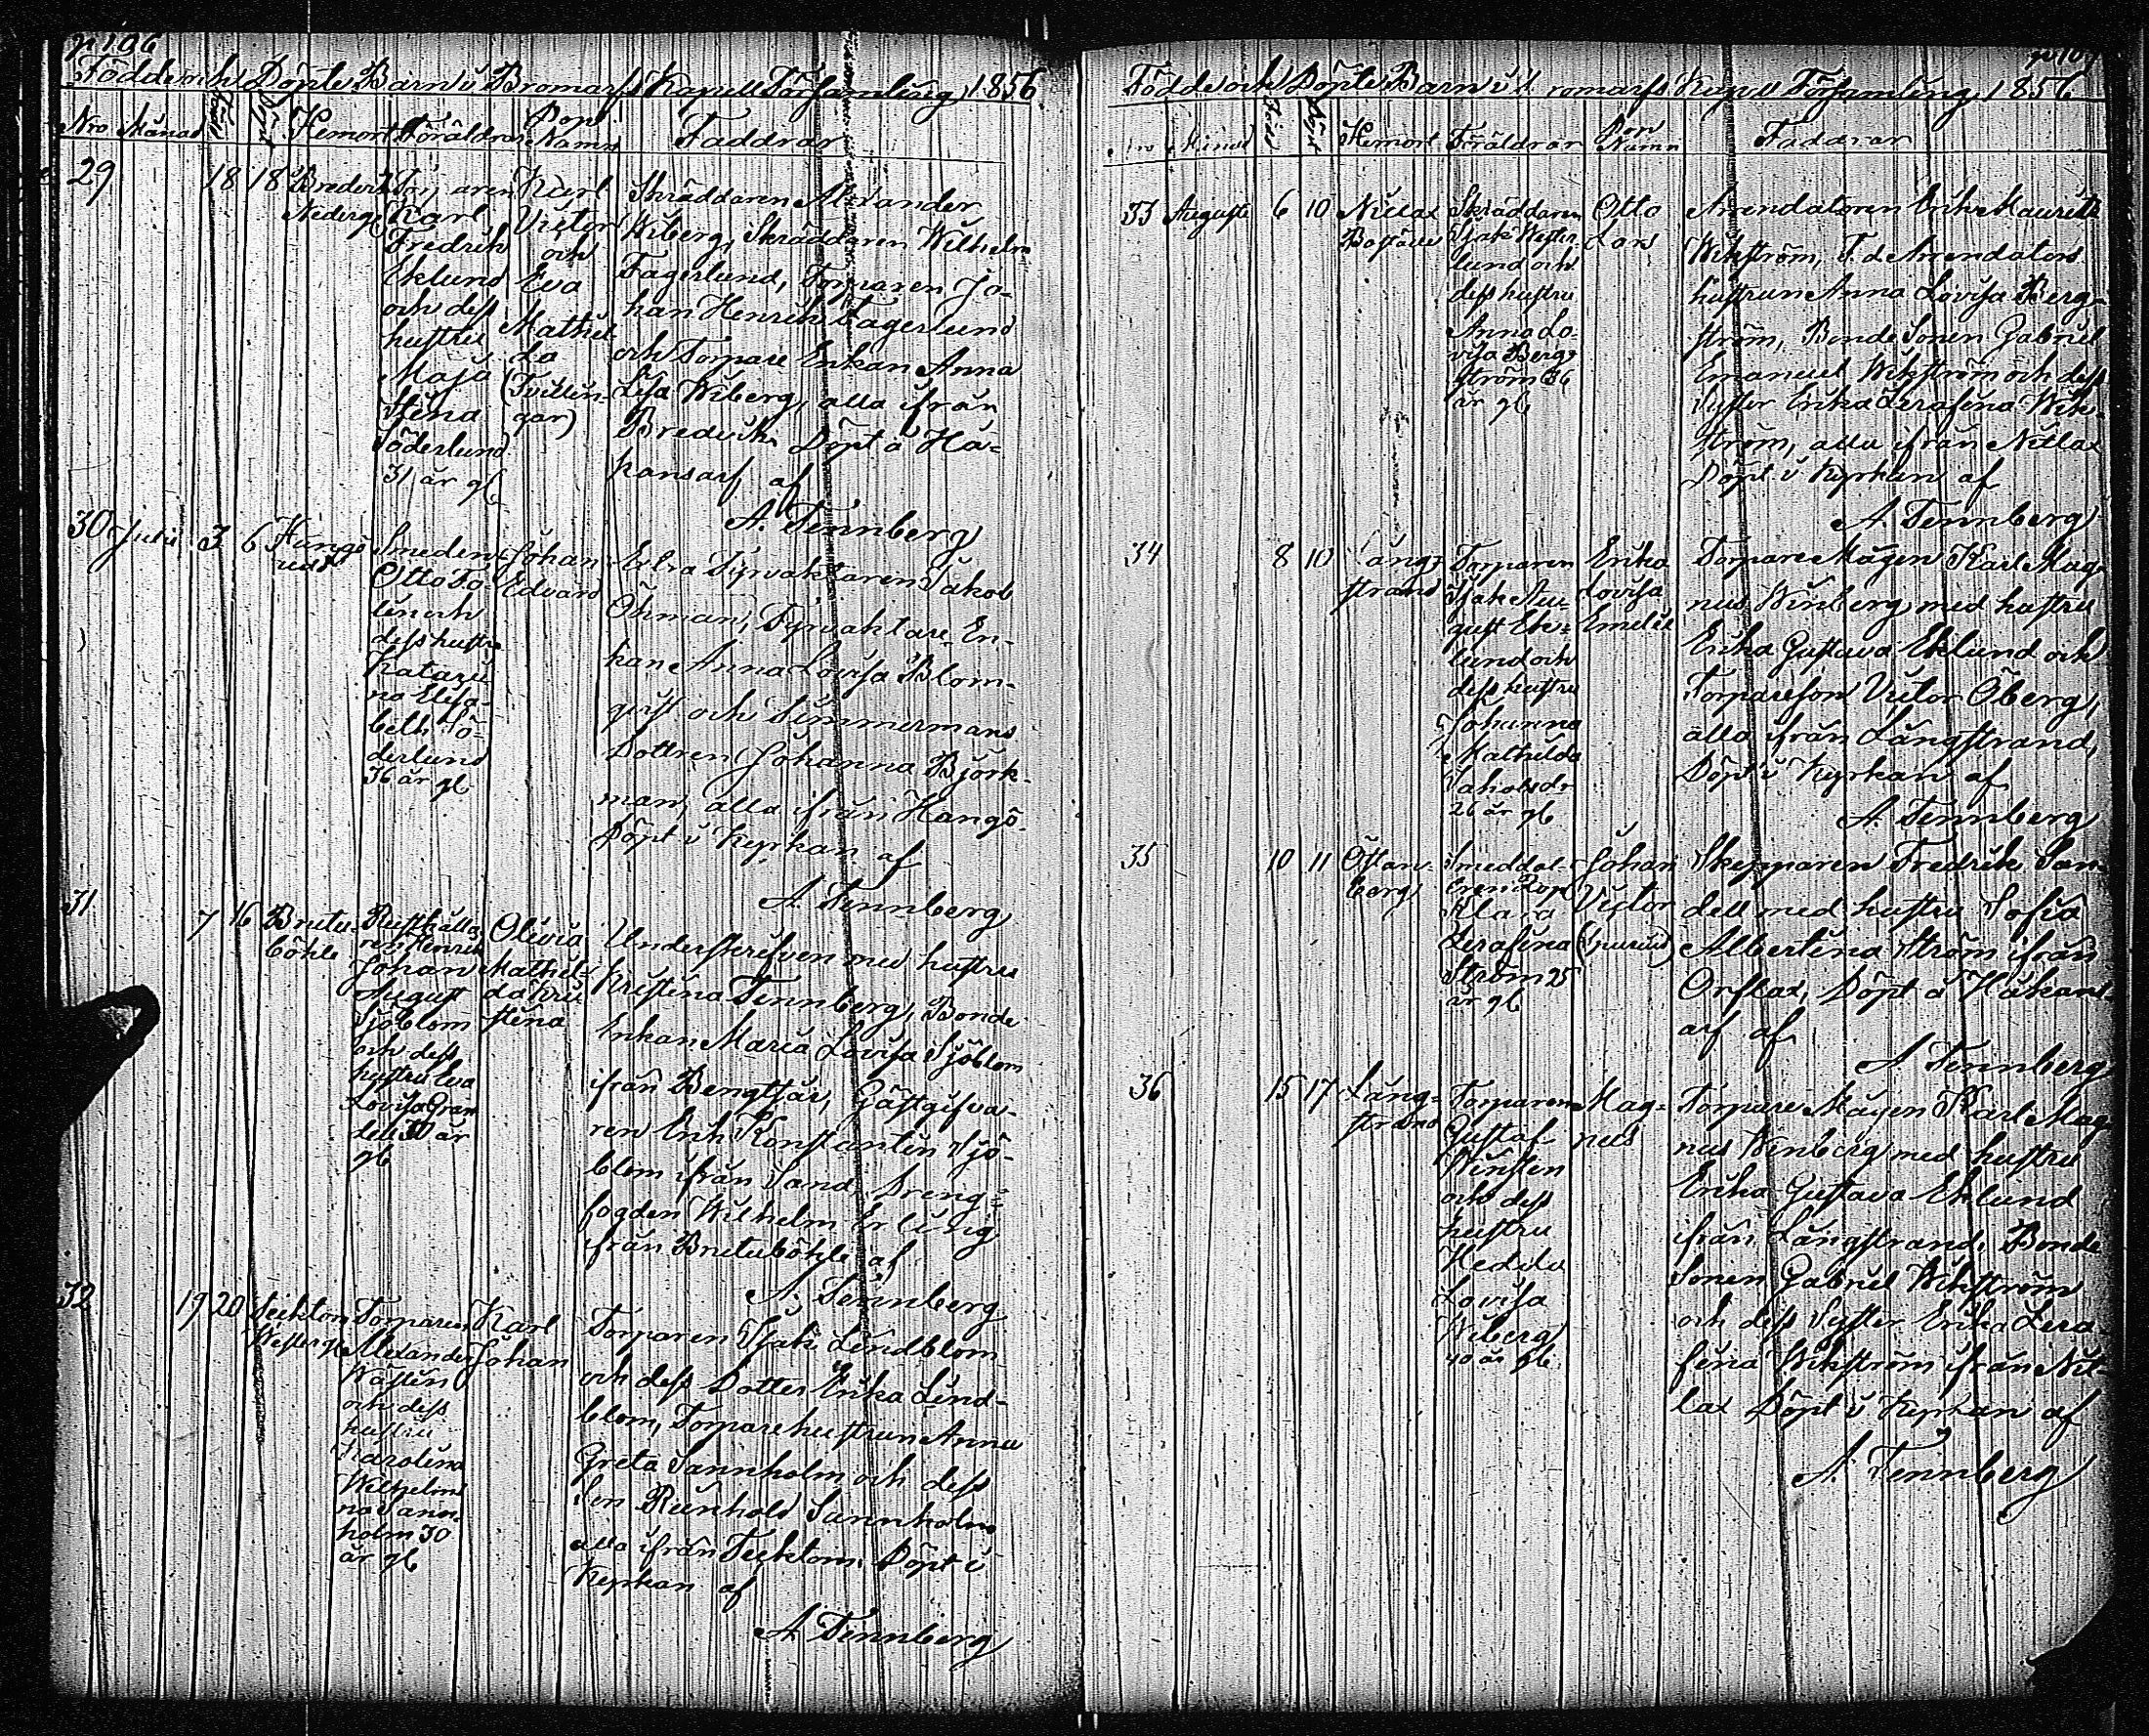 p 106
Födde och Döpte Barn i Bromarfs Kapell Församling 1856
Nro Månad Född Döpt Hemort Föräldrar Dop Namn Faddrar
29 18 18 Bredvik Nederg.
Torparen
Karl
Fredrik
Eklund
och dess
hustru
Maja
Stina
Söderlund
31 år gl
Karl
Victor
och
Eva
Mathil-
da
(Tvillin-
gar)
Skräddaren Alexander
Wiberg, Skräddaren Wilhelm
Fagerlund, Torparen Jo-
han Henrik Fagerlund
och Torpare Enkan Anna
Lisa Wiberg, alla ifrån
Bredvik. Döpt å Hå-
kansarf af
A. Tennberg
30 Julii 3 6 Hangö
Smeden
Otto
och
dess hustru
Katari-
na Elisa-
beth Sö-
derlund
36 år gl
Johan
Edvard
Extra Fyrvaktaren Jakob
Öhman, Fyrvaktare En-
kan Anna Lovisa Blom-
qvist och Timmermans
Dottren Johanna Björk-
man, alla ifrån Hangö.
Döpt i Kyrkan af
A. Tennberg
31 7 16 Brutu-
böhle
Rusthålla-
ren Henrik
Johan
August
Sjöblom
och dess
hustru Eva
Lovisa Gran-
år
gl
Olivia
Mathil-
da Kri-
stina
Underskrifven med hustru
Kristina Tennberg, Bonde
Enkan Maria Lovisa Sjöblom
ifrån Bengtsår, Gästgifva-
ren Erik Konstantin Sjö-
blom ifrån Sand, Dreng-
fogden Wilhelm Erling
från Brutuböhle af
A. Tennberg
32 19 20 Tecktom
Westerg.
Torparen
Alexander
Wästin
och dess
hustru
Karolina
Wilhelmi-
na Sann-
holm 30
år gl
Karl
Johan
Torparen Isak Lindblom
och dess Dotter Erika Lind-
blom, Torparehustrun Anna
Greta Sannholm och dess
Son Reinhold Sannholm
alla ifrån Tecktom. Döpt i
Kyrkan af
A. Tennberg
p 107
Födde och Döpte Barn i Bromarfs Kapell Församling 1856
Nro Månad Född Döpt Hemort Föräldrar Dop Namn Faddrar
33 Augusti 6 10 Nitlax
Skräddaren
Isak Wester-
lund och
dess hustru
Anna Lo-
visa Berg-
ström 36
år gl
Otto
Lars
Arrendatoren Erik Mauritz
Wikström, F. d. Arrendators
hustrun Anna Lovisa Berg-
ström, Bonde Sonen Gabriel
Emanuel Wikström och dess
Syster Erika Serafina Wik-
ström, alla ifrån Nitlax
Döpt i Kyrkan af
A. Tennberg
34 8 10 Lång-
strand
Torparen
Isak Au-
gust Ek-
lund och
dess hustru
Johanna
Mathilda
Jakobsdr
26 år gl
Erika
Lovisa
Emilie
Torpare Mågen Karl Mag-
nus Winberg med hustru
Erika Gustava Eklund och
Torpareson Victor Öberg,
alla ifrån Långstrand,
Döpt i Kyrkan af
A. Tennberg
35 10 11 Östan-
berg
Klara
Serafina
Ström 25
år gl
Johan
Victor
Skepparen Fredrik San-
dell med hustru Sofia
Albertina Ström ifrån
Orslax, Döpt å Håkans-
arf af
A. Tennberg
36 15 17 Lång-
strand
Torparen
Gustaf
Winsten
och dess
hustru
Hedda
Lovisa
Wiberg
40 år gl.
Mag-
nus
Torpare Mågen Karl Mag-
nus Winberg med hustru
Erika Gustava Eklund
ifrån Långstrand, Bonde
Sonen Gabriel Wikström
och dess Syster Erika Sera-
fina Wikström ifrån Nit-
lax Döpt i Kyrkan af
A. Tennberg